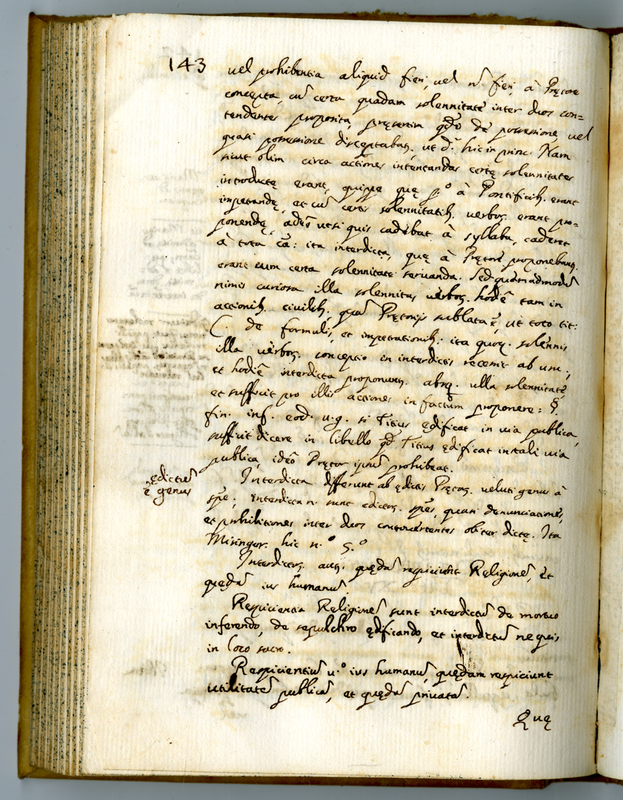 143
uel prohibentia aliquid fieri, uel nō fieri à Pręcore
concepta, cū certa quadam solennitate inter duos con=
tendentes proponita, pręsertim qdo de possessione, uel
quasi possessione disceptabatur, ut d. hic in princ. Nam
sicut olim circa actiones intentandas certę solennitates
introductę erant, quippe quę p.º à Pontificib. erant
impetandę, et cū certis solennitatib. verbor. erant pro-
ponendę, adeo ut si quis cadebat à syllaba, caderet
à tota cā: ita interdicta, quę à Pręcore proponebant.
erant cum certa solennitate seruanda. Sed quemadmodū
nimis curiosa illa solennitas verbor. hodie tam in
actionib. ciuilib, quā Pręcorijs sublata ē, ut toto tit:
C. de formulis, et impetrationib. ita quoq. solennis
illa verbor. conceptio in interdictis recessit ab usu,
et hodie interdicta proponunt. absq. ulla solennitate,
et sufficit pro illis actiones in factum proponere: §.
fin. inf. eod. u.g. si Titius ędificat in uia publica,
sufficit dicere in libello qd Titius ędificat in tali uia
publica, ideo Pręcor ipsū prohibeat.
Interdicta differunt ab edictis Pręcor. veluti genus à
spē, interdicta n. sunt edictor. spēs, quasi denunciationes,
et prohibitiones inter duos controuertentes obiter dictę. Ita
Misingor. hic n.º 5.º
edictū
ē genus
Interdictor. aut. quędā respiciunt Religionē, et
quędā ius humanū
Respicientia Religionē sunt interdictū de mortuo
inferendo, de sepulchro ędificando, et interdictū ne quis
in loco sacro.
Respicientiū u.º ius humanū, quędam respiciunt
utilitatē publicā, et quędā priuatā.
Quę